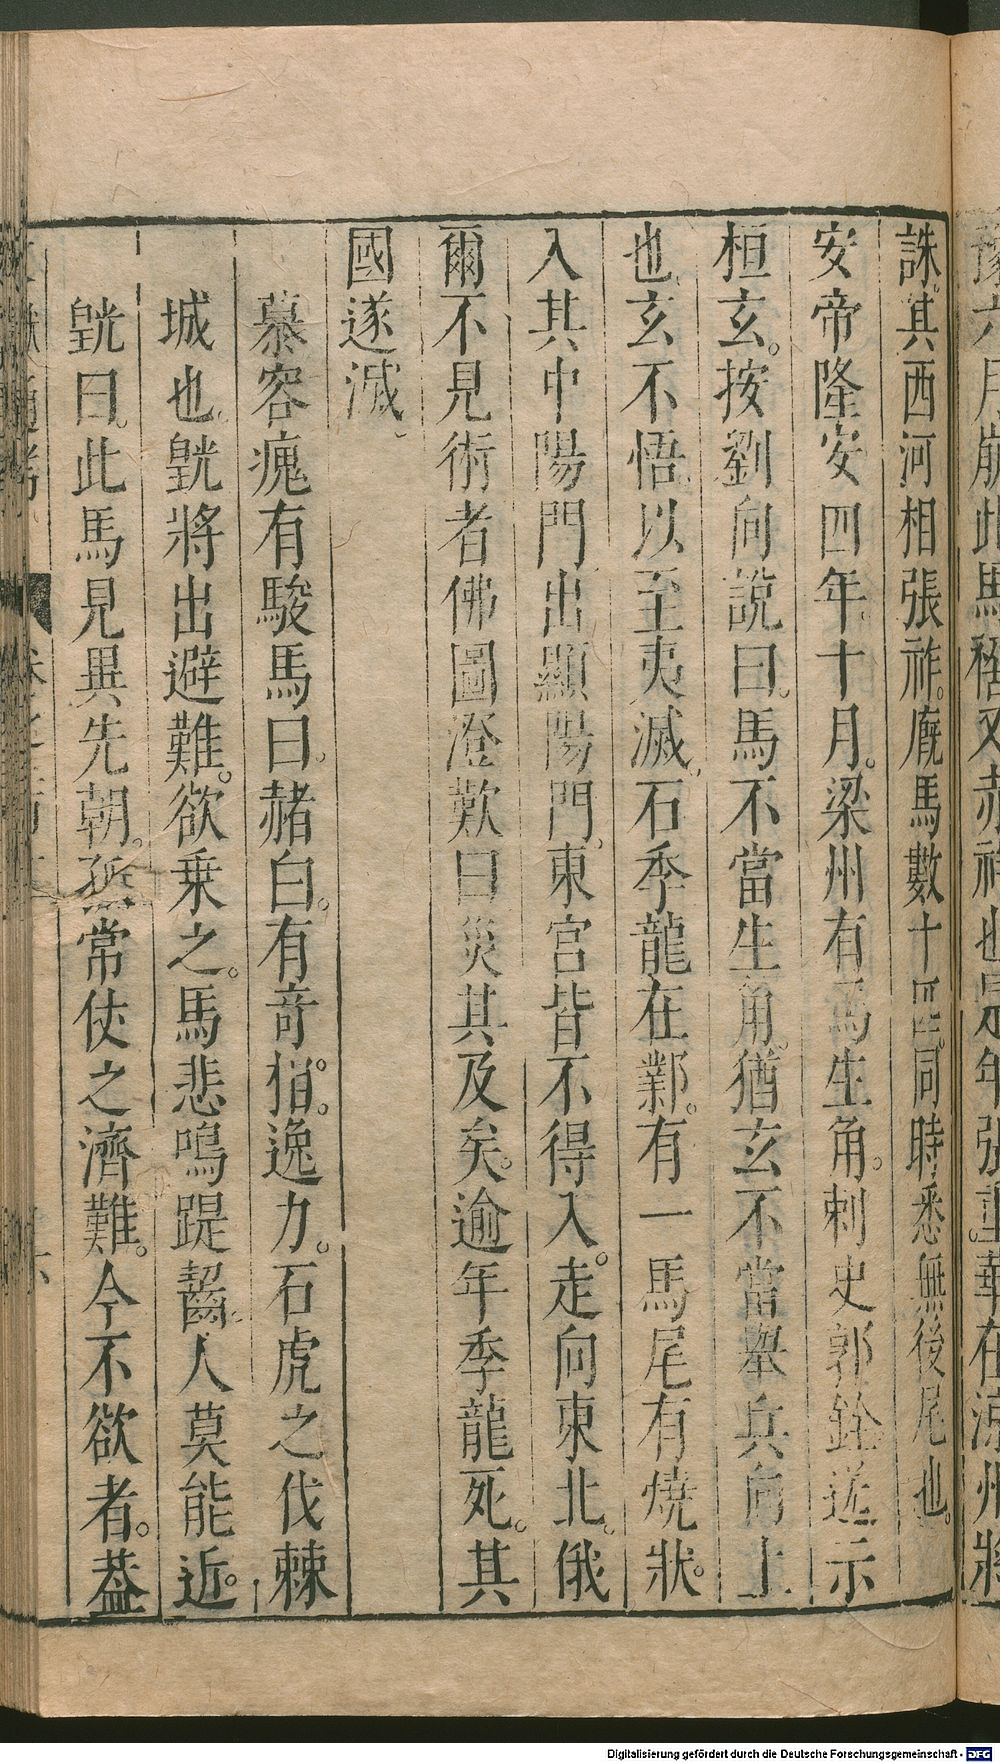 豫六月崩此馬禍又赤祥也是年張重華在涼州將
誅其西河相張祚廐馬數十匹同時悉無後尾也
安帝隆安四年十月梁州有馬生角刺史郭銓送示
桓玄按劉向說曰馬不當生角猶玄不當舉兵向上
也玄不悟以至夷滅石季龍在鄴有一馬尾有燒狀
入其中陽門出顯陽門東宮皆不得入走向東北俄
爾不見術者佛圖澄歎曰災其及矣逾年季龍死其
國遂滅
慕容廆有駿馬曰赭白有奇㨾逸力石虎之伐棘
城也皝將出避難欲乗之馬悲鳴踶齧人莫能近
皝曰此馬見異先朝孤常仗之濟難今不欲者葢
文獻通考
Digitalisierung gefördert durch die Deutsche Forschungsgemeinschaft - DFG